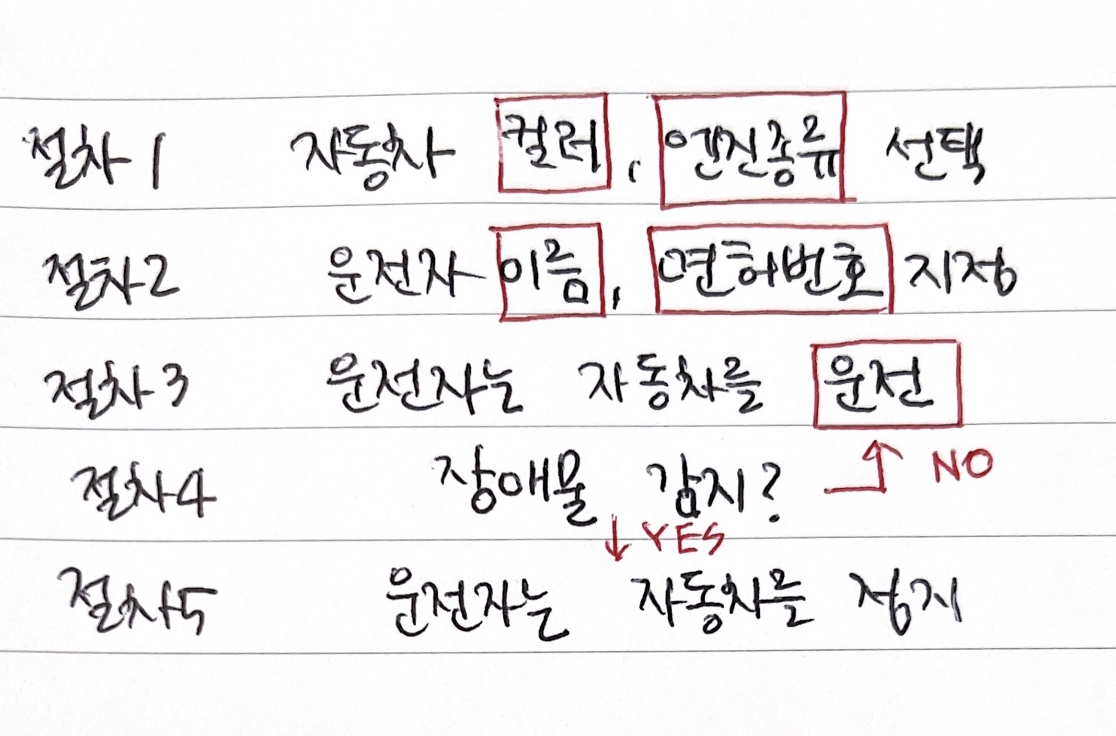 절차1 자동차 컬러, 엔진종류 선택
절차2 운전자 이름, 면허번호 지정
절차3 운전자는 자동차를 운전
절차4 장애물 감지? NO
YES
절차5 운전자는 자동차를 정지